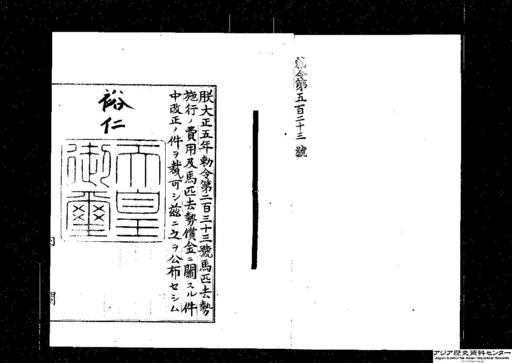 勅令第五百二十三號
朕大正五年勅令第二百三十三號馬匹去勢
施行ノ費用及馬匹去勢償金ニ關スル件
中改正ノ件ヲ裁可シ玆ニ之ヲ公布セシム
裕仁
天皇
御璽
内
閣
アジア歴史資料センター
Japan Center for Asian Historical Records